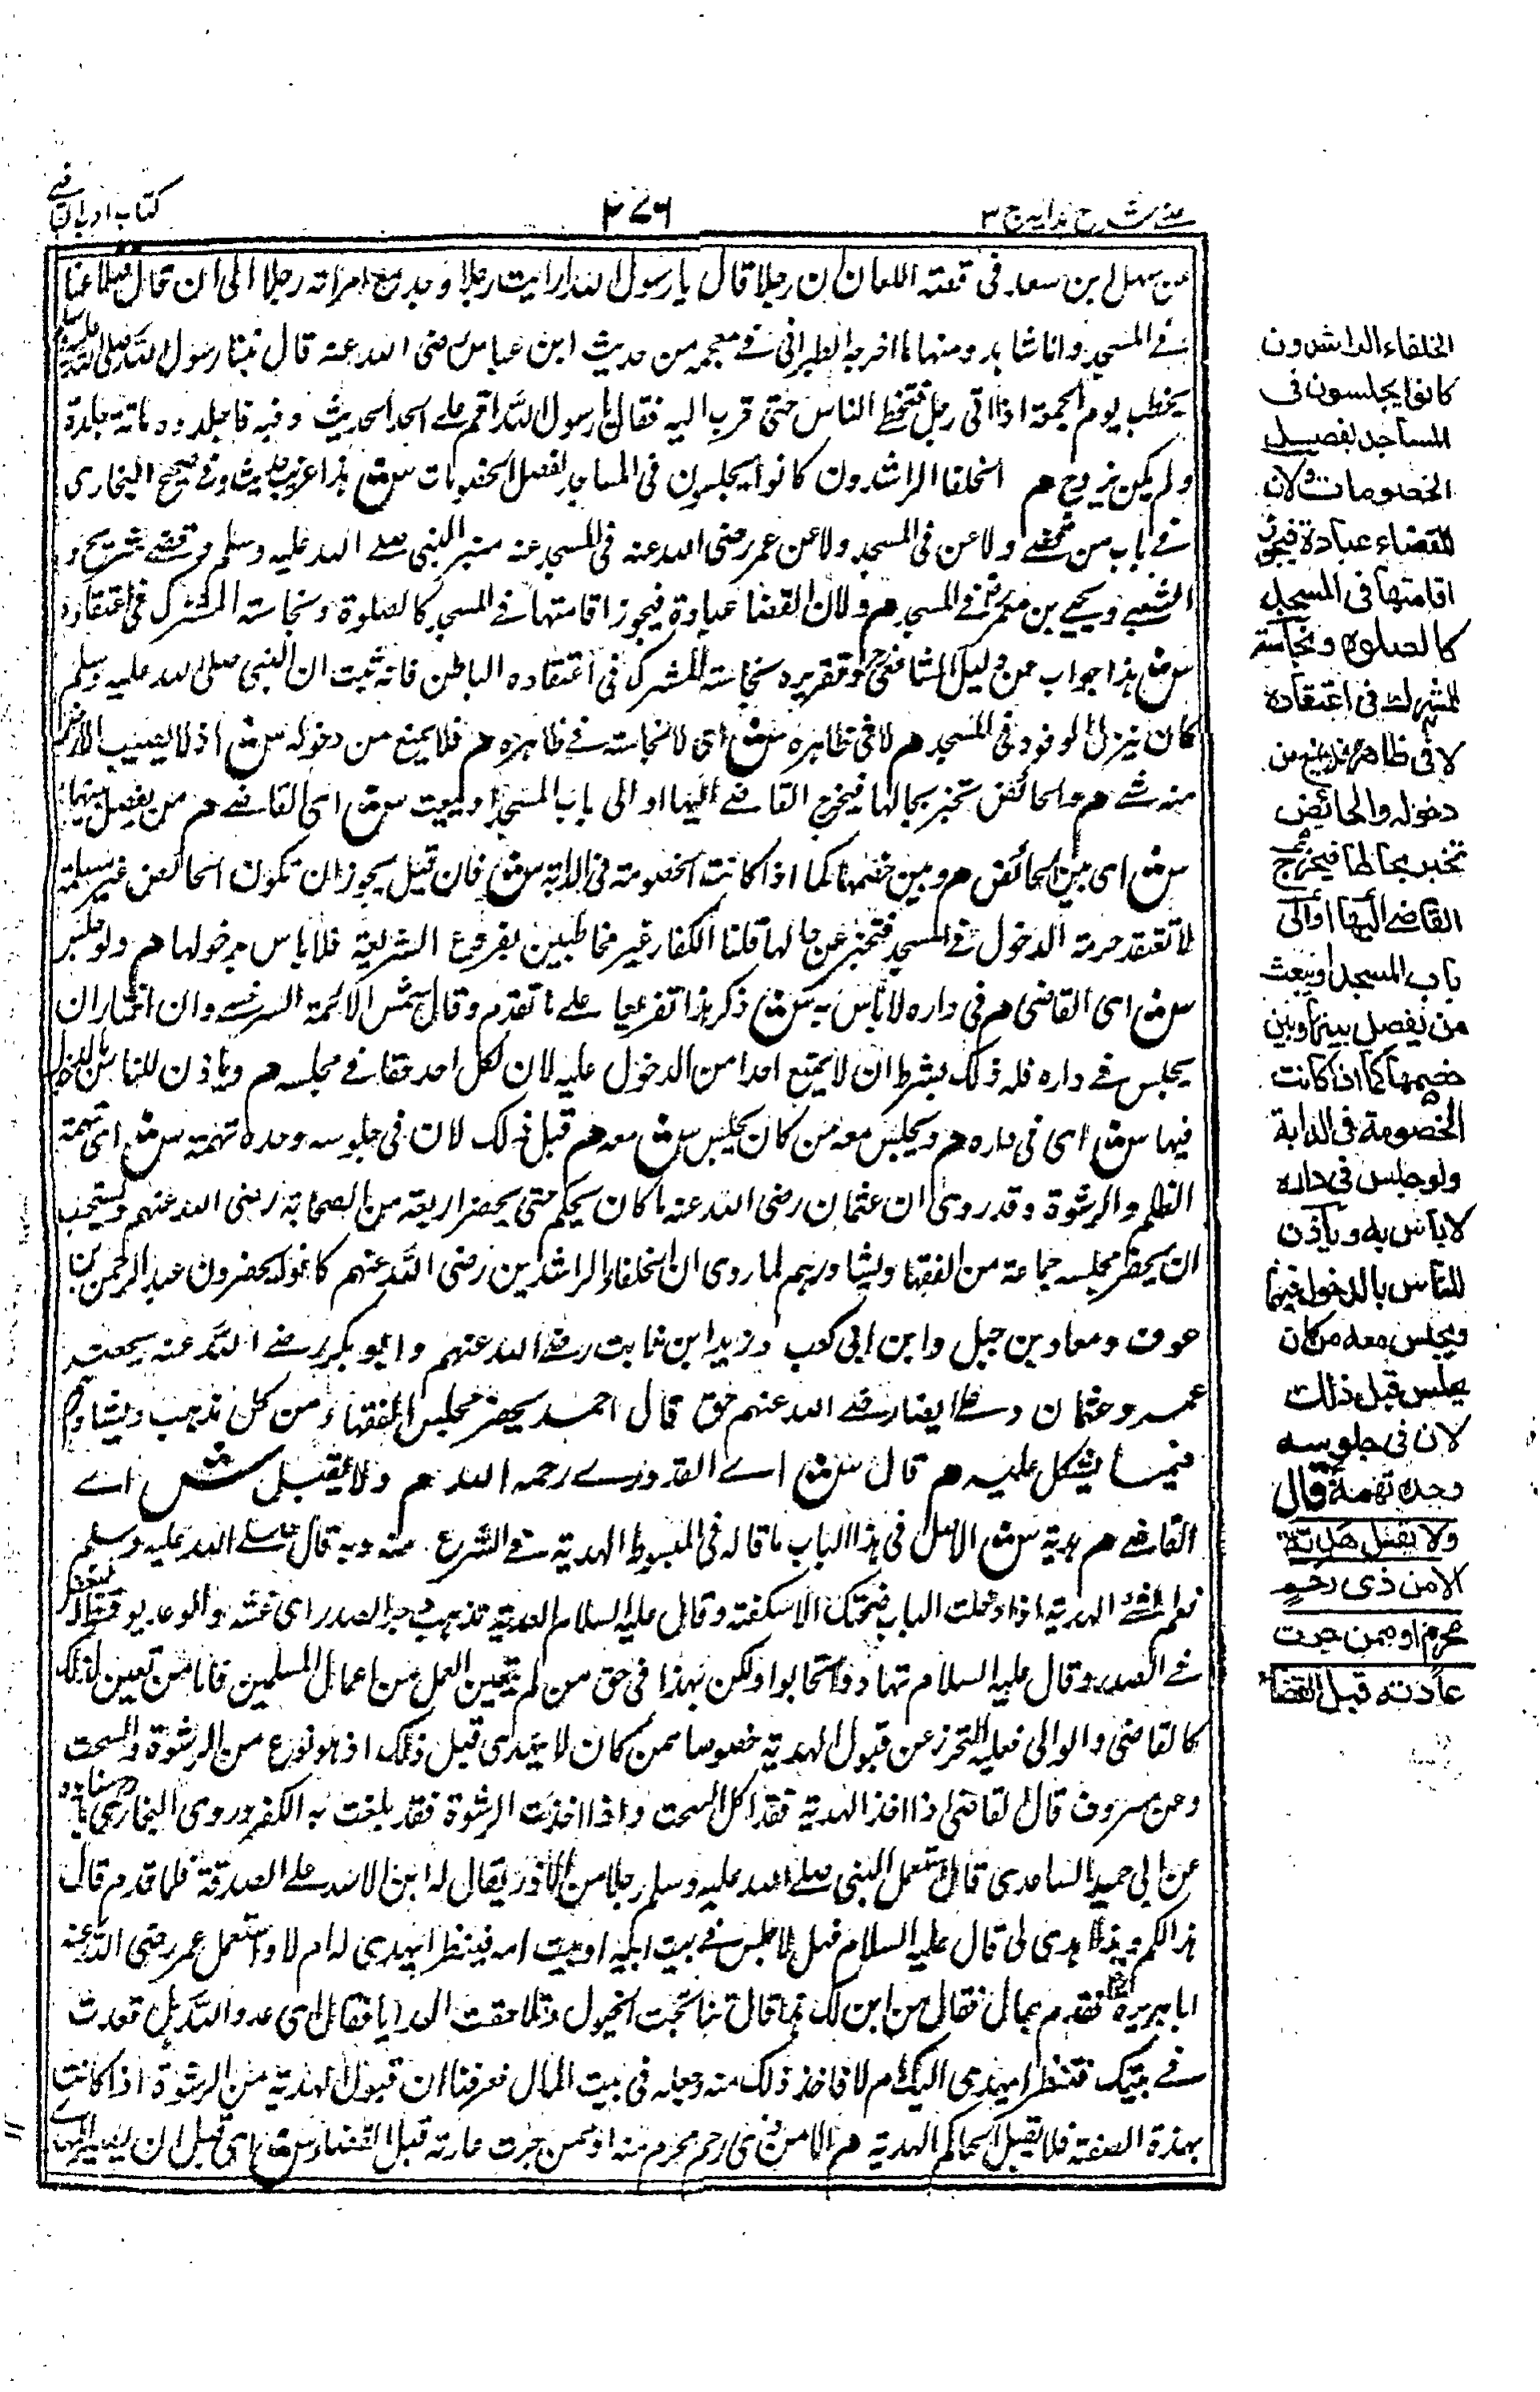 عينے شرح ہدایہ ج ۳
۲۷۶
كتاب ادب القاضے
عن سهل ابن سعد فی قصة اللعان ان رجلا قال يا رسول الله ارايت رجلا وجد مع امراته رجلا الى ان قال فتلاعنا
فے المسجد وانا شاهد ومنها ما اخرجه الطبرانی فے معجمه من حديث ابن عباس رضی الله عنه قال بينا رسول الله صلى الله عليه وسلم
يخطب يوم الجمعة اذا اتى رجل فتخطى الناس حتى قرب اليه فقال يا رسول الله اقم على الحد الحديث وفيه فاجلدوه مائة جلدة
ولم يكن تزوج هم الخلفا الراشدون كانوا يجلسون فی المساجد لفصل الخصومات ش هذا غريب وفے صحيح البخاری
فے باب من قضے ولاعن فی المسجد ولاعن عمر رضی الله عنه فی المسجد عند منبر النبی صلے الله عليه وسلم وقضے شريح و
الشعبے ويحيے بن يعمر فے المسجد هم ولان القضا عبادة فيجوز اقامتها فے المسجد كالصلوة ونجاسة المشرك فی اعتقاده
ش هذا جواب عن دليل الشافعی وتقريره نجاسة المشرك فی اعتقاده الباطن فانه ثبت ان النبی صلى الله عليه وسلم
كان ينزل الوفود فی المسجد هم لا فی ظاهره ش ای لا نجاسة فے ظاهره هم فلا يمنع من دخوله ش اذ لا يصيب الارض
منه شے هم والحائض تخبر بحالها فيخرج القاضے اليها او الى باب المسجد او يبعث ش ای القاضے هم من يفصل بينها
ش ای بين الحائض هم وبين خصمها كما اذا كانت الخصومة فی الدابة ش فان قيل يجوز ان تكون الحائض غير مسلمة
لا تعتقد حرمة الدخول فے المسجد فتخبر عن حالها قلنا الكفار غير مخاطبين بفروع الشريعة فلا باس بدخولها هم ولو جلس
ش ای القاضی هم فی داره لا باس به ش ذكر هذا تفريعا على ما تقدم وقال شمس الائمة السرخسے وان اختار ان
يجلس فے داره فله ذلك بشرط ان لا يمنع احدا من الدخول عليه لان لكل احد حقا فے مجلسه هم وياذن للناس بالدخول
فيها ش ای فی داره هم ويجلس معه من كان يجلس ش معه هم قبل ذلك لان فی جلوسه وحده تهمة ش ای تهمة
الظلم والرشوة وقد روی ان عثمان رضی الله عنه ما كان يحكم حتى يحضر اربعة من الصحابة رضی الله عنهم ويستحب
ان يحضر مجلسه جماعة من الفقها ويشاورهم لما روی ان الخلفاء الراشدين رضی الله عنهم كانوا يحضرون عبد الرحمن بن
عوف ومعاذ بن جبل وابن ابی كعب وزيد ابن ثابت رضے الله عنهم وابو بكر رضے الله عنه يحضر
عمر وعثمان وعلے ايضا رضے الله عنهم حق قال احمد يحضر مجلس الفقهاء من كل مذهب ويشاورهم
فيما يشكل عليه هم قال ش اے القدورے رحمه الله هم ولا يقبل ش اے
القاضے هم هدية ش الاصل فی هذا الباب ما قاله فی المبسوط الهدية فے الشرع منه وبه قال صلے الله عليه وسلم
نعم الشے الهدية اذا دخلت الباب ضحكت الاسكفة وقال عليه السلام الهدية تذهب وحر الصدر ای غشه
فے الصدر وقال عليه السلام تهادوا تحابوا ولكن هذا فی حق من لم يتعين العمل من اعمال المسلمين فاما من تعين لذلك
كالقاضی والوالی فعليه التحرز عن قبول الهدية خصوصا ممن كان لا يهدی قبل ذلك اذ هو نوع من الرشوة والسحت
وعن مسروق قال القاضی اذا اخذ الهدية فقد اكل السحت واذا اخذت الرشوة فقد بلغت به الكفر وروی البخاری باسناده
عن ابی حميد الساعدی قال استعمل النبی صلے الله عليه وسلم رجلا من الازد يقال له ابن الاتبية على الصدقة فلما قدم قال
هذا لكم وهذا اهدی لی قال عليه السلام فهل لا جلس فے بيت ابيه او بيت امه فينظر ايهدی له ام لا واستعمل عمر رضی الله عنه
ابا هريرة فقدم بمال فقال من اين لك هذا قال تناتجت الخيول وتلاحقت الهدايا فقال ای عدو الله هل قعدت
فے بيتك فتنظر ايهدی اليك ام لا فاخذ ذلك منه وجعله فی بيت المال فعرفنا ان قبول الهدية من الرشوة اذا كانت
بهذه الصفة فلا يقبل الحاكم الهدية هم الا من ذی رحم محرم منه او ممن جرت عادته قبل القضاء ش ای قبل ان
الخلفاء الراشدون
كانوا يجلسون فی
المساجد لفصل
الخصومات ولان
القضاء عبادة فيجوز
اقامتها فی المسجد
كالصلوة ونجاسة
المشرك فی اعتقاده
لا فی ظاهره فلا يمنع من
دخوله والحائض
تخبر بحالها فيخرج
القاضے اليها او الى
باب المسجد او يبعث
من يفصل بينها وبين
خصمها كما اذا كانت
الخصومة فی الدابة
ولو جلس فی داره
لا باس به وياذن
للناس بالدخول فيها
ويجلس معه من كان
يجلس قبل ذلك
لان فی جلوسه
وحده تهمة قال
ولا يقبل هدية
الا من ذی رحم
محرم او ممن جرت
عادته قبل القضاء